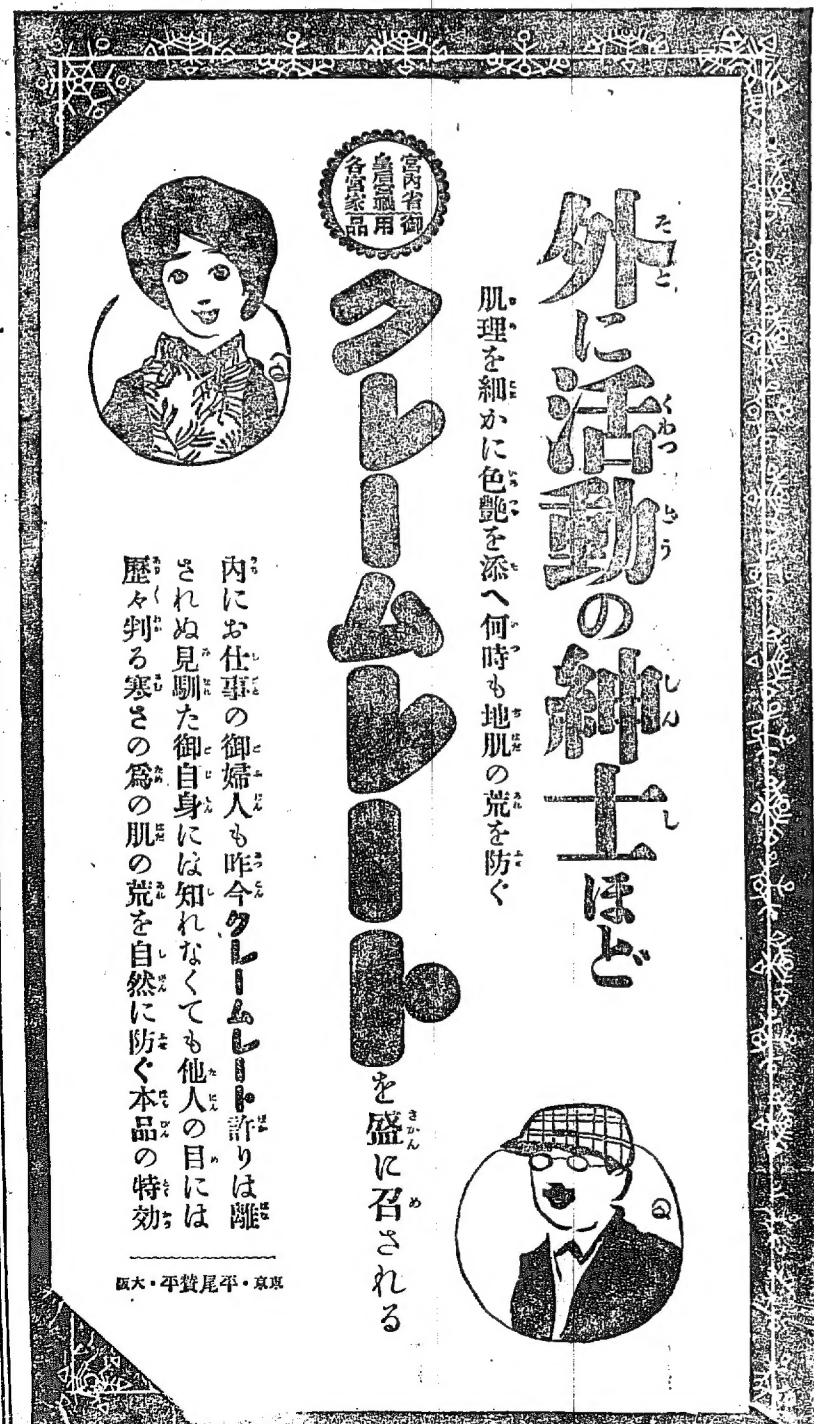 外に活動の紳士ほど
肌理を細かに色艶を添へ何時も地肌の荒を防ぐ
宮内省
皇后宮職
各宮家
御用品
クレームレートを盛に召される
内にお仕事の御婦人も昨今クレームレート許りは離
されぬ見馴た御自身には知れなくても他人の目には
歴々判る寒さの為の肌の荒を自然に防ぐ本品の特効
東京・平尾賛平・大阪